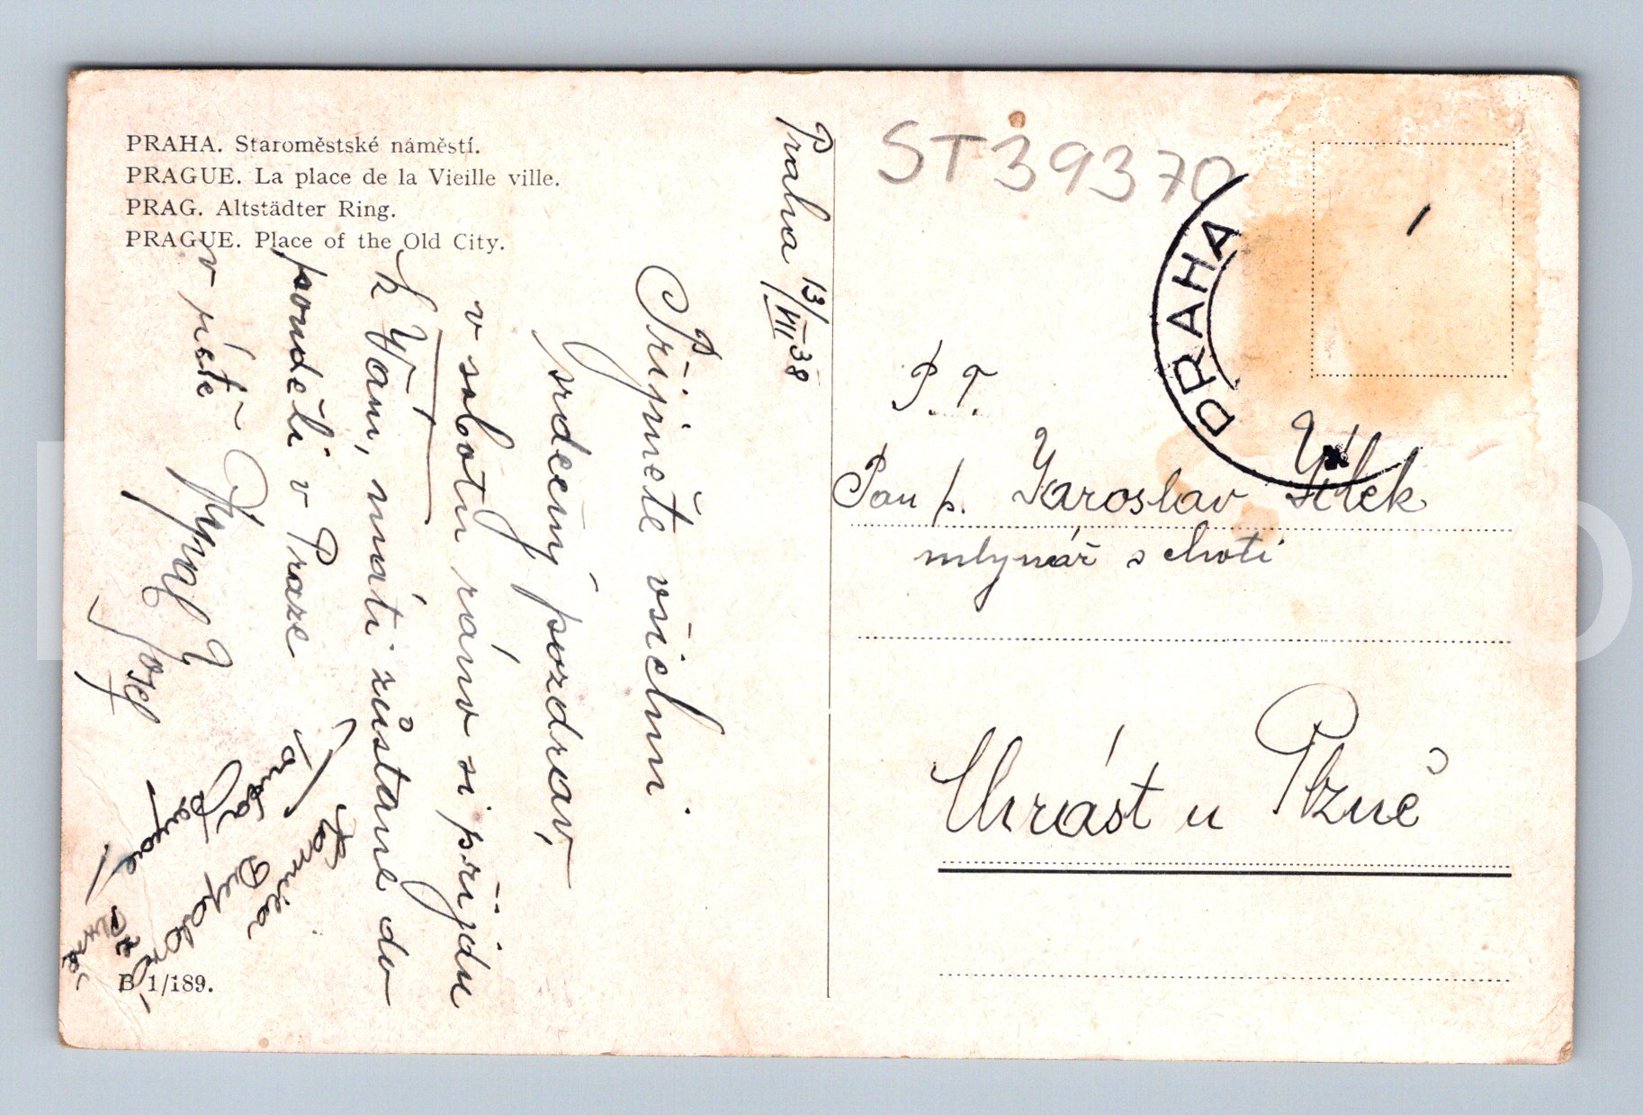 PRAHA. Staroměstské náměstí.
PRAGUE. La place de la Vieille ville.
PRAG. Altstädter Ring.
PRAGUE. Place of the Old City.
Praha 13/VII 38
Přijměte všichni
srdečný pozdrav,
v sobotu ráno si přijdu
k Vám, máti zůstane do
pondělí v Praze
v
Josef
Tonča
ze Plzně
B 1/189.
ST39370
PRAHA
P. T.
Pan p. Jaroslav Jílek
mlynář s chotí
Chrást u Plzně